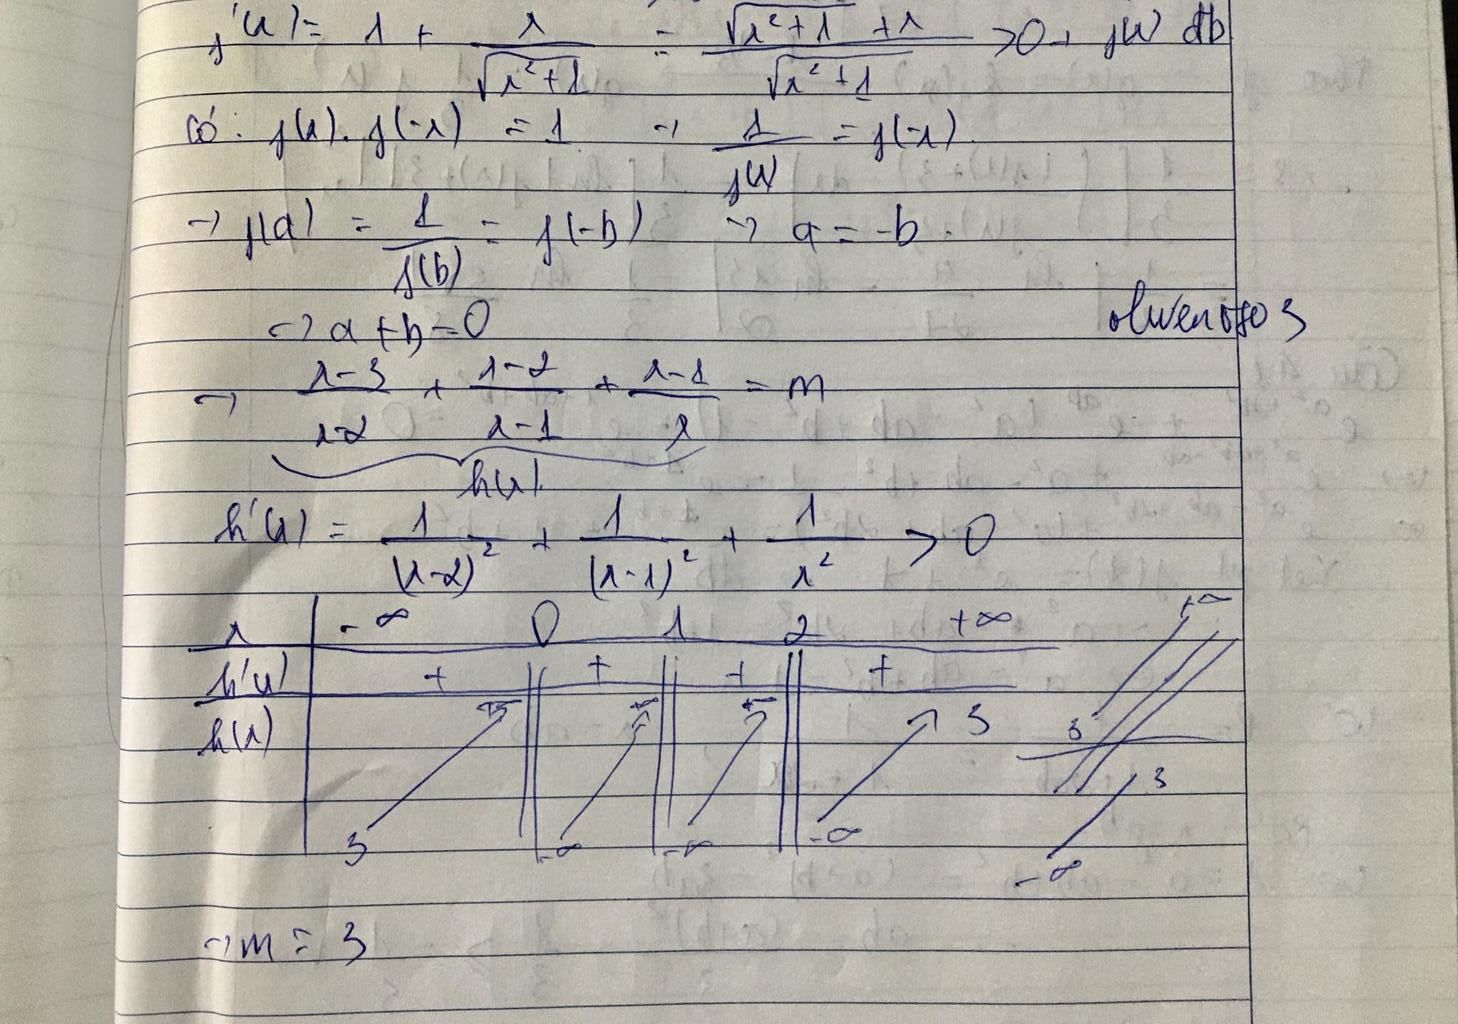 f'(x) = 1 + x/√(x²+1) = (√(x²+1) + x)/√(x²+1) > 0 → f(x) đb
Có: f(x).f(-x) = 1 → 1/f(x) = f(-x)
→ f(a) = 1/f(b) = f(-b) → a = -b.
→ a + b = 0
→ (x-3)/(x-2) + (x-2)/(x-1) + (x-1)/x = m
h(x)
h'(x) = 1/(x-2)² + 1/(x-1)² + 1/x² > 0
x -∞ 0 1 2 +∞
h'(x) + + + +
h(x) +∞ +∞ +∞ 3
3 -∞ -∞ -∞
+∞
3
3
-∞
→ m = 3